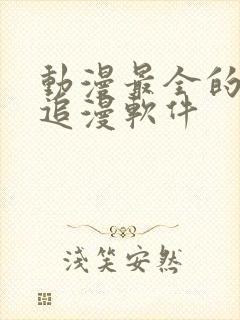 動漫最全的
追漫軟件
淺笑安然